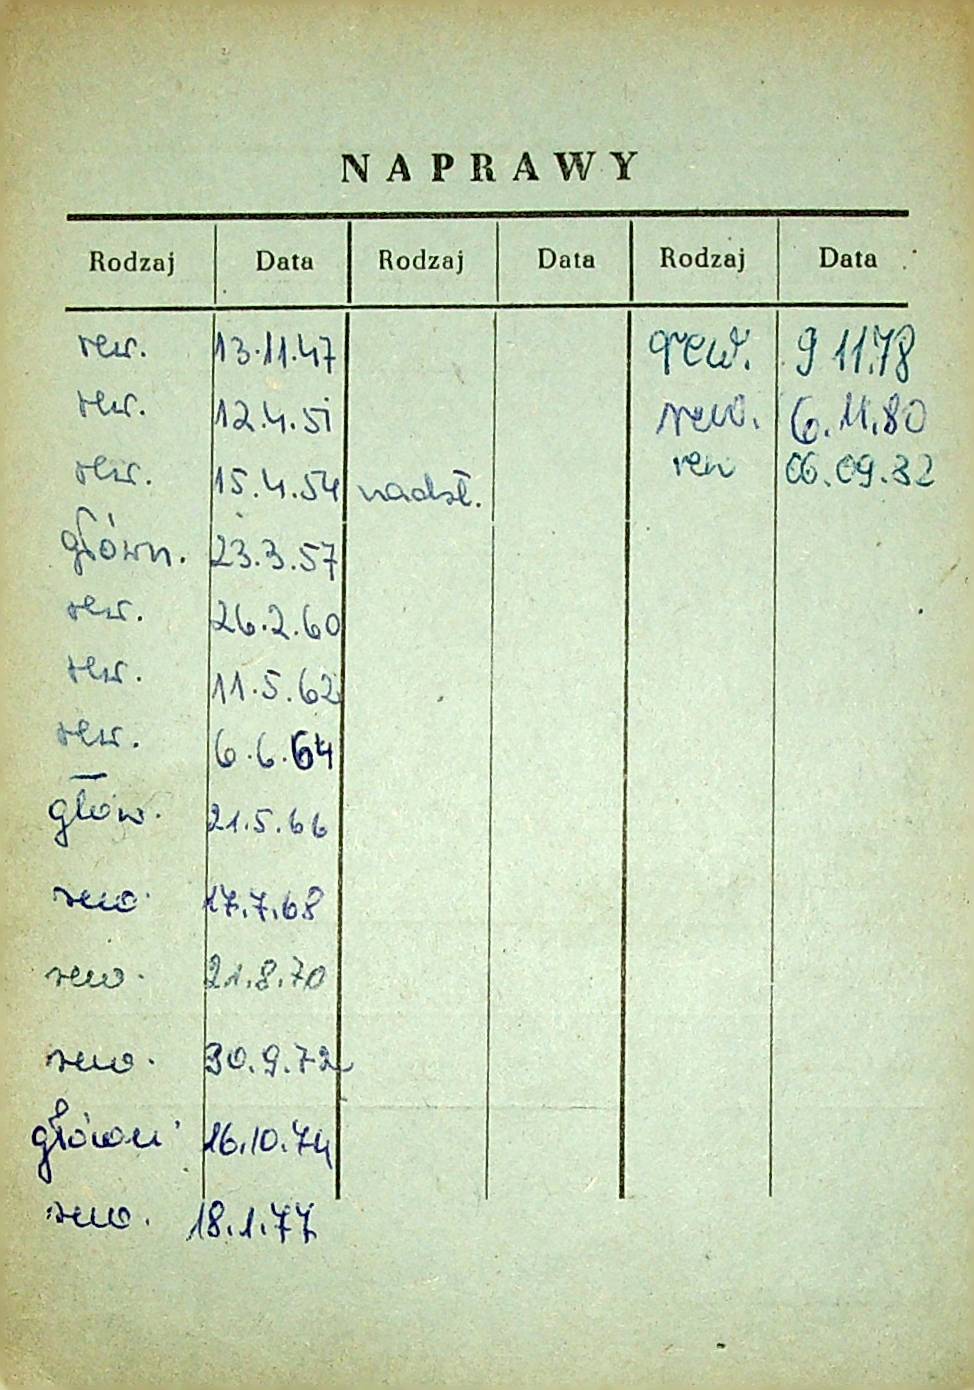 NAPRAWY
Rodzaj Data Rodzaj Data Rodzaj Data
rew. 13.11.47 rew. 9 11.78
rew. 12.4.51 rew. 6.11.80
rew. 15.4.54 nadzł. rew 06.09.32
główn. 23.3.57
rew. 26.2.60
rew. 11.5.62
rew. 6.6.64
głów. 21.5.66
rew. 17.7.68
rew. 21.8.70
rew. 30.9.72
główn. 16.10.74
rew. 18.1.77